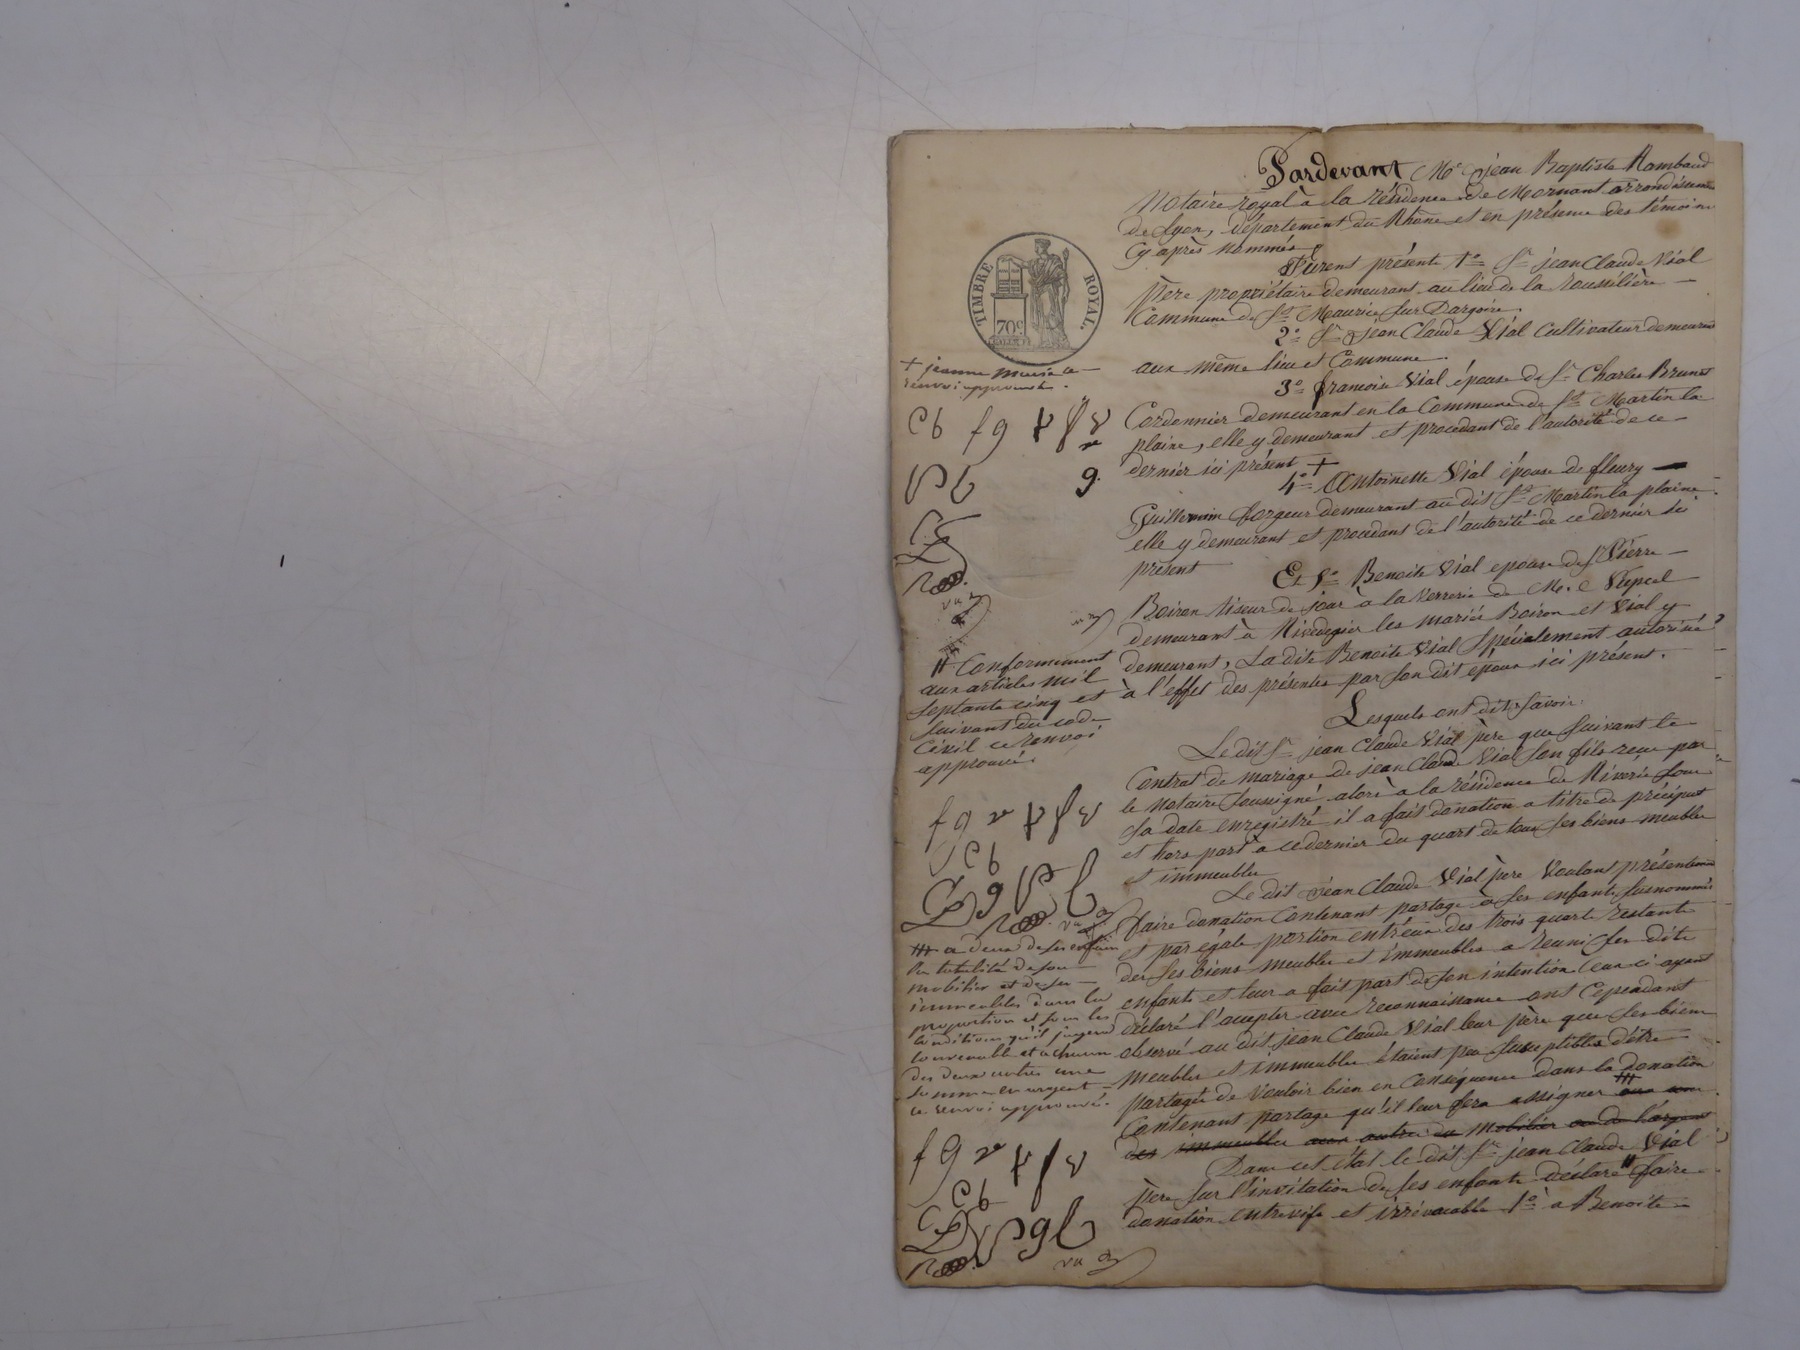 Pardevant Me jean Baptiste Rambaud
Notaire royal à la résidence de Mornant arrondissement
de Lyon, département du Rhône et en présence des témoins
cy après nommés
Furent présents 1° Sr jean Claude Vial
père propriétaire demeurant au lieu de la roussilière
Commune de St Maurice sur Dargoire.
2° Sr jean Claude Vial Cultivateur demeurant
aux même lieu et Commune.
3° françoise Vial épouse de Sr Charles Brunet
Cordonnier demeurant en la Commune de St Martin la
plaine, elle y demeurant et procédant de l'autorité de ce
dernier ici présent +
4° Antoinette Vial épouse de fleury
Guillermin forgeur demeurant au dit St Martin la plaine
elle y demeurant et procédant de l'autorité de ce dernier ici
présent
Et 5° Benoite Vial epouse de Sr Pierre
Boiron tiseur de jour à la Verrerie de M.
demeurant à Rivedegier les mariés Boiron et Vial y
demeurant, La dite Benoite Vial Spécialement autorisé
à l'effet des présentes par son dit époux ici présent.
Lesquels ont dit Savoir:
Le dit Sr jean Claude Vial père que Suivant le
Contrat de mariage de jean Claude Vial Son fils reçu par
le Notaire Soussigné alors à la résidence de Riverie Sous
Sa date enregistré il a fait donation a titre de préciput
et hors part à ce dernier du quart de tous Ses biens meubles
et immeubles
Le dit jean Claude Vial père Voulant présentement
faire donation Contenant partage à Ses enfants Susnommés
et par égale portion entr'eux des trois quarts restants
de Ses biens meubles et immeubles a reuni Ses dits
enfants et leur a fait part de Son intention Ceux ci ayant
déclaré l'accepter avec reconnaissance ont Cependant
observé au dit jean Claude Vial leur père que Ses biens
meubles et immeubles étaient peu Susceptibles d'être
partagés de Vouloir bien en Conséquence dans la donation
Contenant partage qu'il leur fera assigner ⧻ aux uns
des immeubles aux autres du mobilier ou de l'argent
Dans cet état le dit Sr jean Claude Vial
père Sur l'invitation de Ses enfants déclare # faire
donation entrevifs et irrévocable 1° à Benoite
TIMBRE ROYAL.
70c
+ jeanne Marie ce
renvoi approuvé.
Cb fg
# Conformement
aux articles mil
Septante cinq et
Suivant du code
Civil ce renvoi
approuvé.
fg
Cb
⧻ a deux de ses enfans
la totalité de son
mobilier et de ses
immeubles dans les
proportion et sous les
conditions qu'il jugera
convenable et a chacun
des deux autres une
somme en argent
ce renvoi approuvé.
fg
Cb